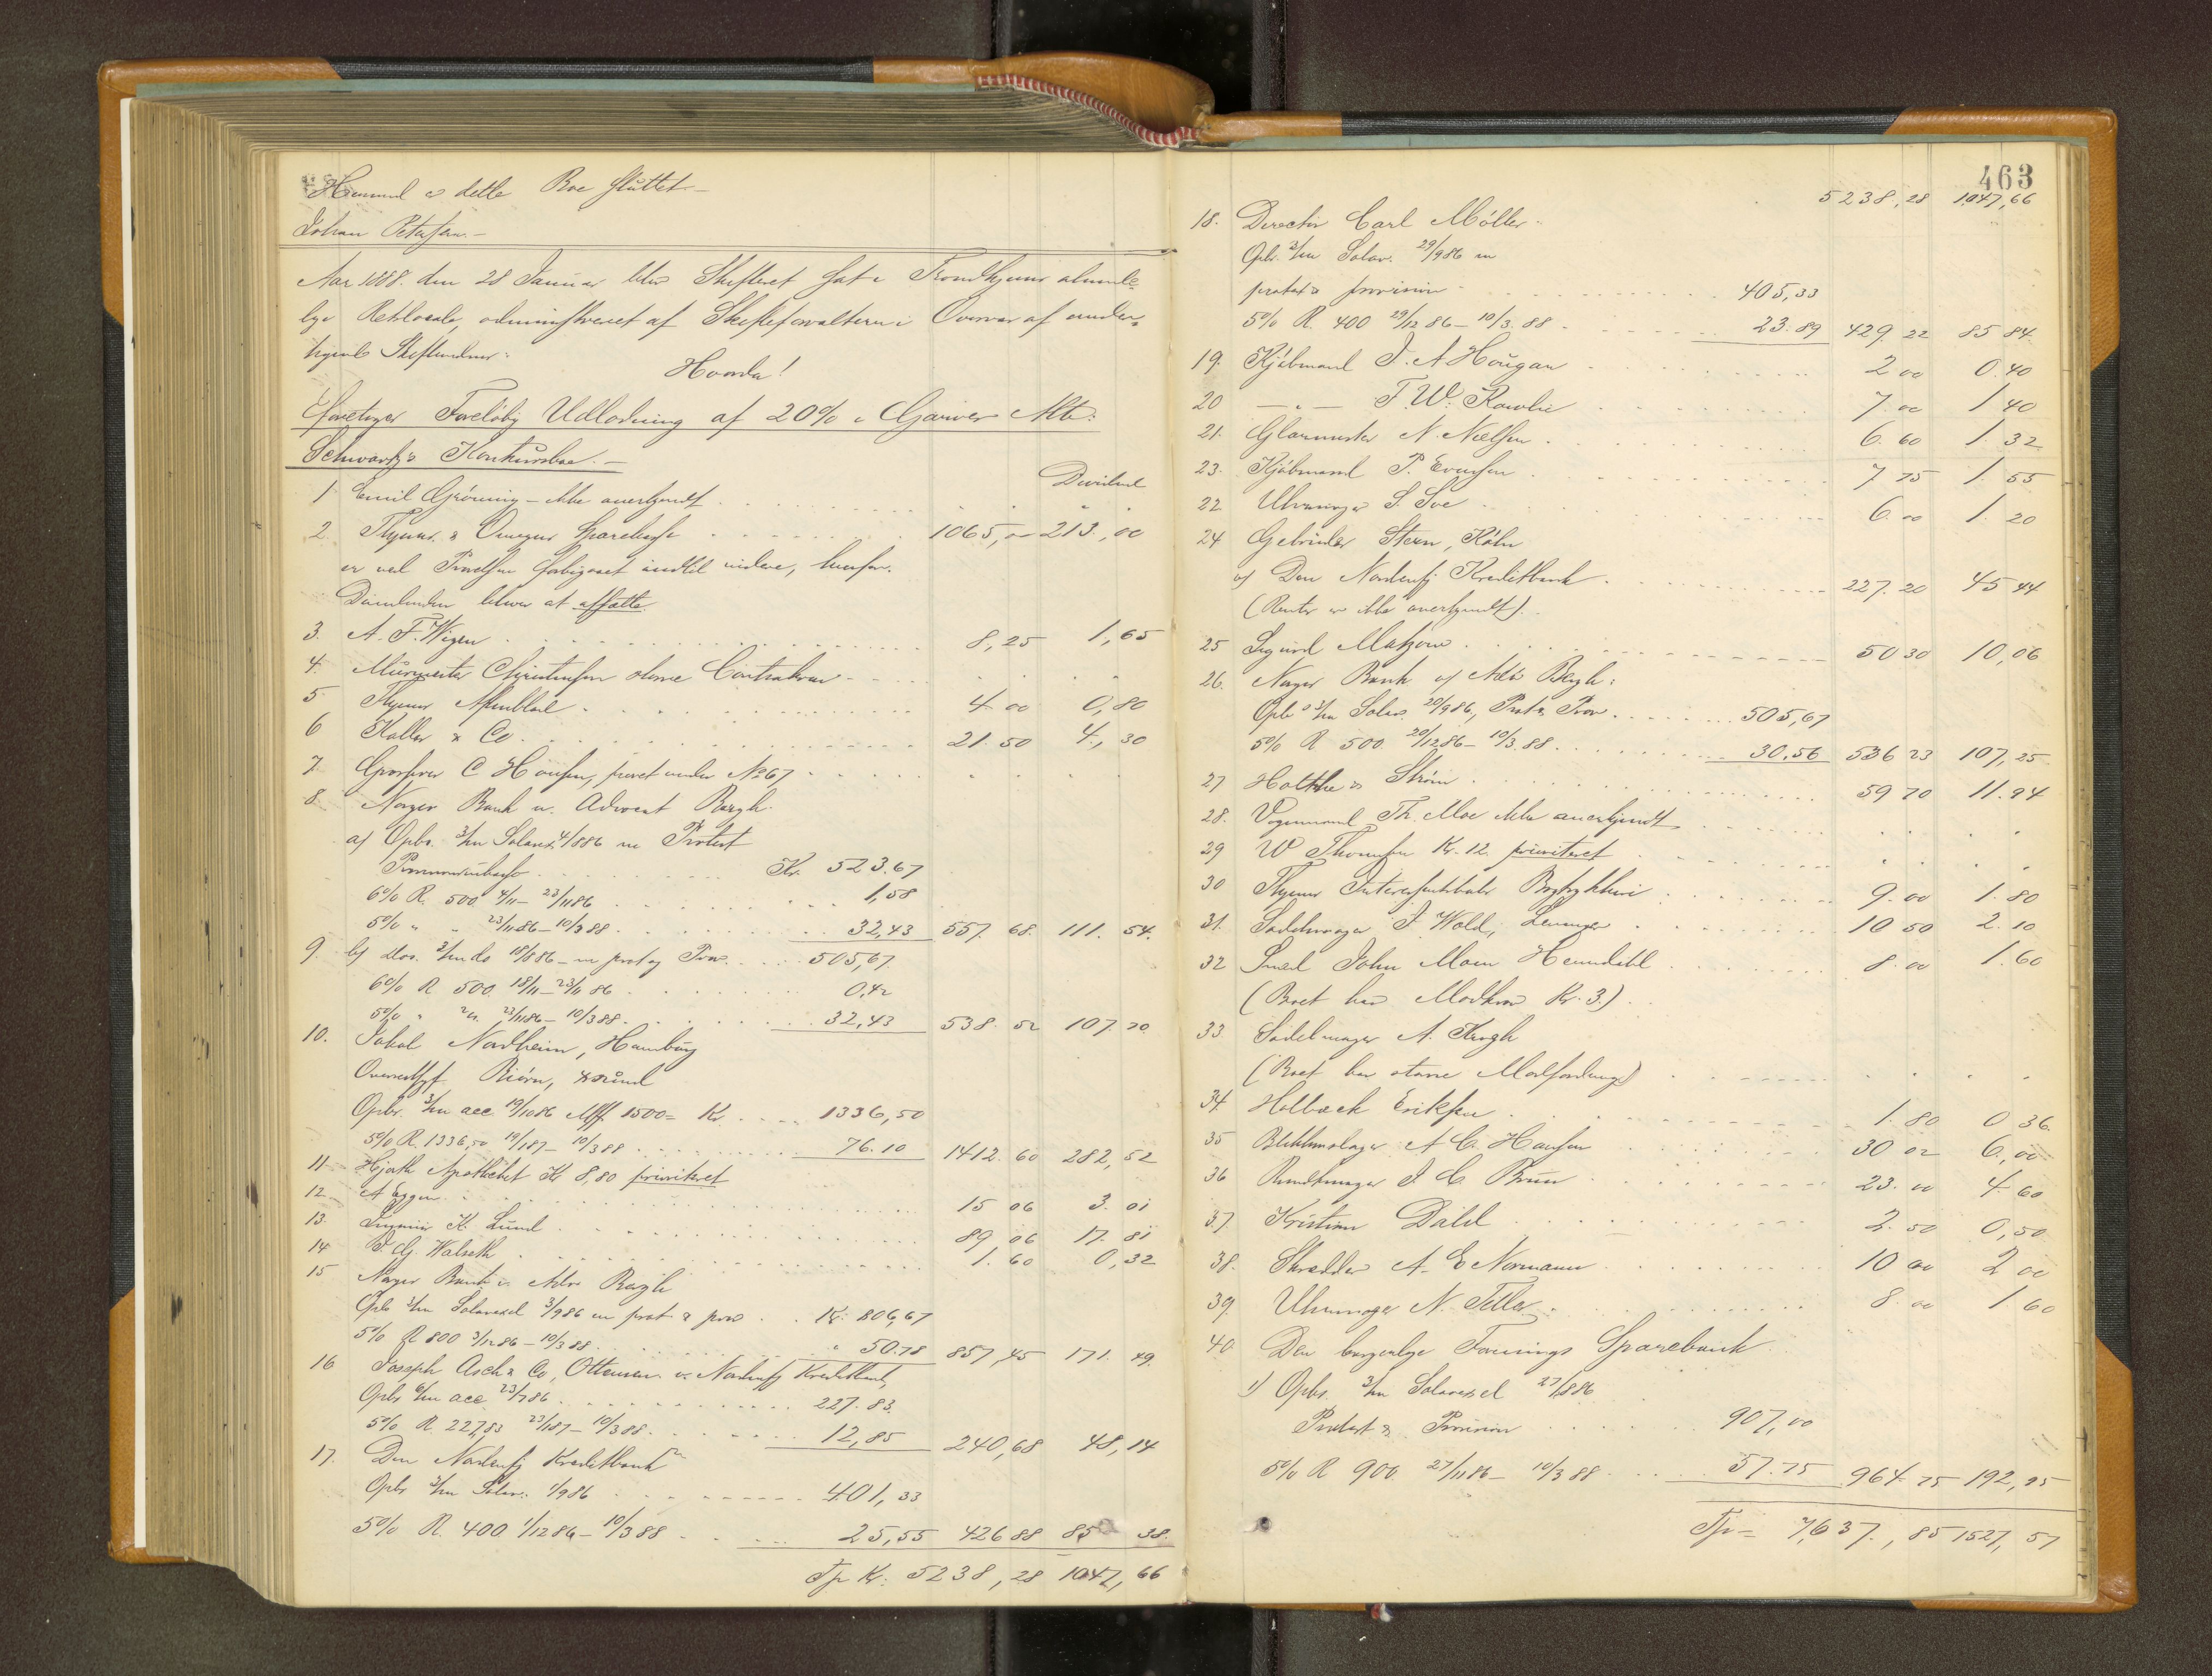 Hermed er dette Boe sluttet.-
Johan Petersen.-
Aar 1888. den 28 Januar blev Skifteret sat i Trondhjems alminde-
lige Retslocale, administreret af Skifteforvalteren i Overvær af under-
tegnede Skiftevidner:
Hvorda!
foretoges Foreløbig Udlodning af 20% i Garver Mb.
Schwartz's Konkursbo.-
Dividend
1 Emil Grönning - ikke anerkjendt
2. Thjems & Omegns Sparebank 1065,00 213,00
er ved Proved forbigaaet indtil videre, hvorfor
Dividenden bliver at afsætte.
3. A. F. Wigen 8,25 1,65
4. Murmester Christensen större Contrakrav
5 Thjems Aftenblad 4 00 0,80
6 Kaller & Co. 21.50 4,30
7. Grosserer C Hansen, prövet under No 67
8 Norges Bank v. Advocat Bergh.
a) Opbr. 3/m Solavx. 4/886 m Protest
Kr. 523.67
6% R. 500 4/11 - 23/1186 1,58
5% " " 23/1186 - 10/388 32,43 557.68. 111.54.
9. b) do. 3/m do 18/886 - m prot og Prov. 505,67
6% R 500 18/11 - 23/11 86 0,42
5% " " 23/1186 - 10/388. 32,43 538.52 107.70
10. Jakob Nordheim, Hamburg
Overretssgf. Biörn, Xsund
Opbr. 3/m acc 19/1086 Mff 1500 = Kr. 1336,50
5% R. 1336,50 19/187 - 10/388 76.10 1412.60 282,52
11 Hjorth Apothek Kr 8,80 prioriteret
12 A Eggen 15 06 3.01
13. Ingeniör K. Lund 89 06 17.81
14 O. G. Walseth 1.60 0,32
15 Norges Bank v. Adv. Bergh
Opbr 3/m Solavexel 3/986 m prot & prov Kr. 806,67
5% R 800 3/1286 - 10/388 " 50.78 857,45 171.49.
16 Joseph Asch & Co, Ottensen v. Nordenfj Kreditbank,
Opbr 6/m acc 23/786 227.83.
5% R 227,83 23/187 - 10/388. 12,85 240,68 48,14
17. Den Nordenfj Kreditbank
Opbr 3/m Solav. 1/986 401,33
5% R. 400 1/1286 - 10/388 25,55 426 88 85 38.
Tp Kr. 5238,28 1047,66
463
5238,28 1047,66
18. Directör Carl Möller.
Opbr. 3/m Solav. 29/986 m
protest & provision 405,33
5% R. 400 29/12 86 - 10/3 88 23.89 429.22 85 84.
19. Kjöbmand J. A Hougan 2 00 0.40
20 - " - F. W. Rowlie 7.00 1 40
21. Glarmester N. Nielsen 6.60 1.32
23. Kjöbmand P. Evensen 7 75 1.55
22 Uhrmager S. Soe 6.00 1.20
24 Gebrüder Stern, Köln
v/ Den Nordenfj Kreditbank 227.20 45 44
(Renter er ikke anerkjendt).
25 Sigurd Matzow 50 30 10,06
26. Norges Bank v/ Adv. Bergh:
Opbr 3/m Solav. 20/986, Prot & Prov 505,67
5% R 500. 20/1286 - 10/3.88 30.56 536 23 107,25
27 Holthe & Ström 59 70 11.94
28. Vognmand Th. Moe ikke anerkjendt
29 W Thomsen Kr. 12. prioriteret
30 Thjems Interessentskabs Bogtrykkeri 9.00 1.80
31. Sadelmager J. Wold, Levanger 10 50 2.10
32 Smed John Moen Hemndahl 8.00 1.60
(Boet har Modkrav Kr. 3.)
33 Sadelmager A. Krogh
(Boet har större Modfordring)
34. Holbæck Eriksen 1.80 0 36.
35 Blikkenslager A C. Hansen 30 02 6,00
36 Bundtmager J. C. Bruun 23.00 4 60
37. Kristian Dahl 2.50 0,50
38. Skrædder A. E Normann 10 00 2 00
39. Uhrmager N. Teller 8.00 1.60
40. Den borgerlige Forenings Sparebank
1) Opbr. 3/m Solavexel 27/886
Protest & Provision 907,00
5% R 900. 27/1186 - 10/3 88 57.75 964.75 192,95
Tp = 7637,85 1527,57